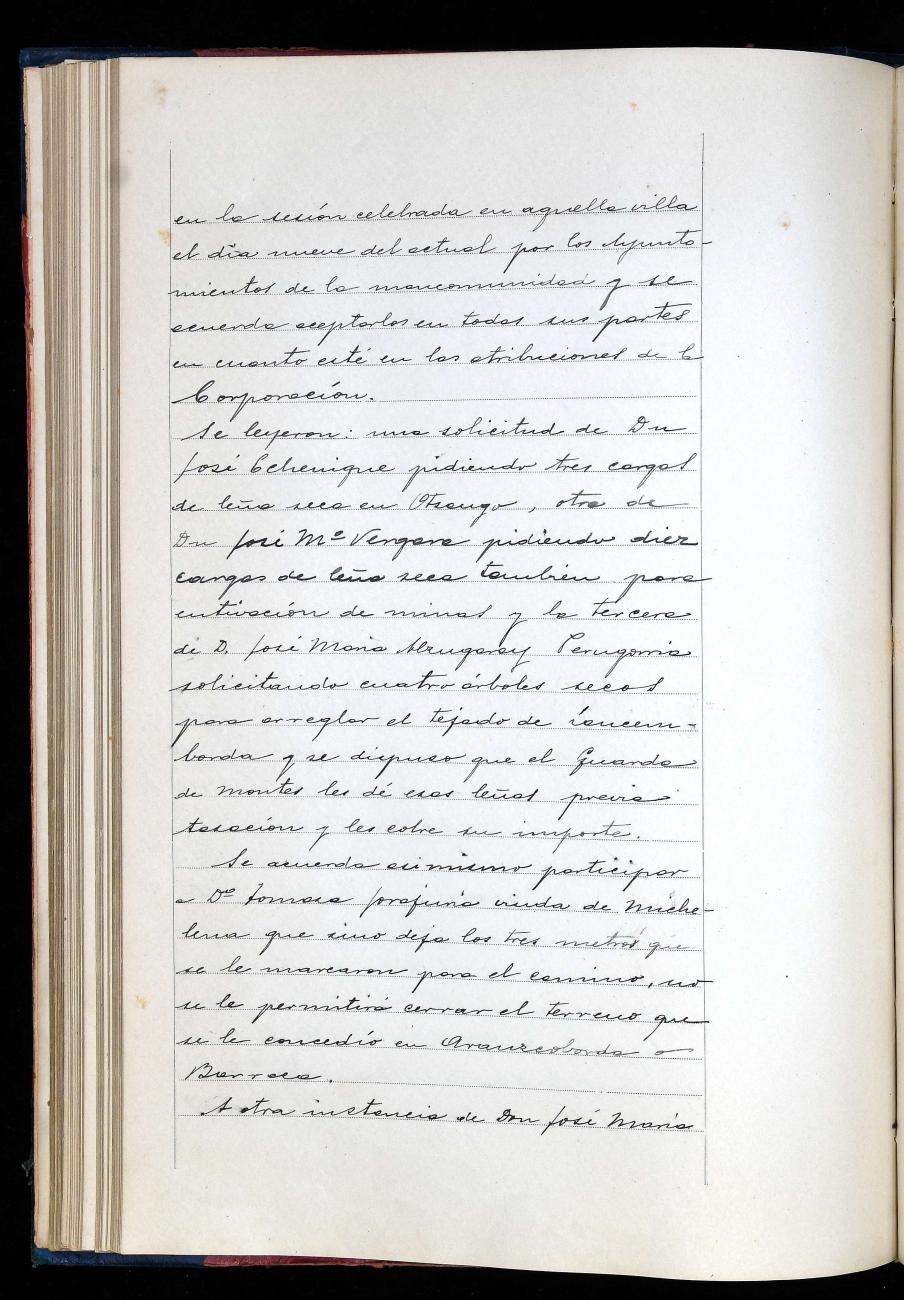 en la sesión celebrada en aquella villa
el día nueve del actual por los Ayunta-
mientos de la mancomunidad y se
acuerda aceptarlos en todas sus partes
en cuanto esté en las atribuciones de la
Corporación.
Se leyeron: una solicitud de Dn
José Echenique pidiendo tres cargas
de leña seca en Otsango, otra de
Dn José Mª Vergara pidiendo diez
cargas de leña seca también para
entivación de minas y la tercera
de D. José Maria Alzugaray Perugorria
solicitando cuatro árboles secos
para arreglar el tejado de
borda y se dispuso que el Guarda
de montes les dé esas leñas previa
tasación y les cobre su importe.
Se acuerda asimismo participar
a Dª Tomasa viuda de Miche-
lena que sino deja los tres metros que
se le marcaron para el camino, no
se le permitirá cerrar el terreno que
se le concedío en Aranzeoborda o
Barraca.
A otra instancia de Don José María